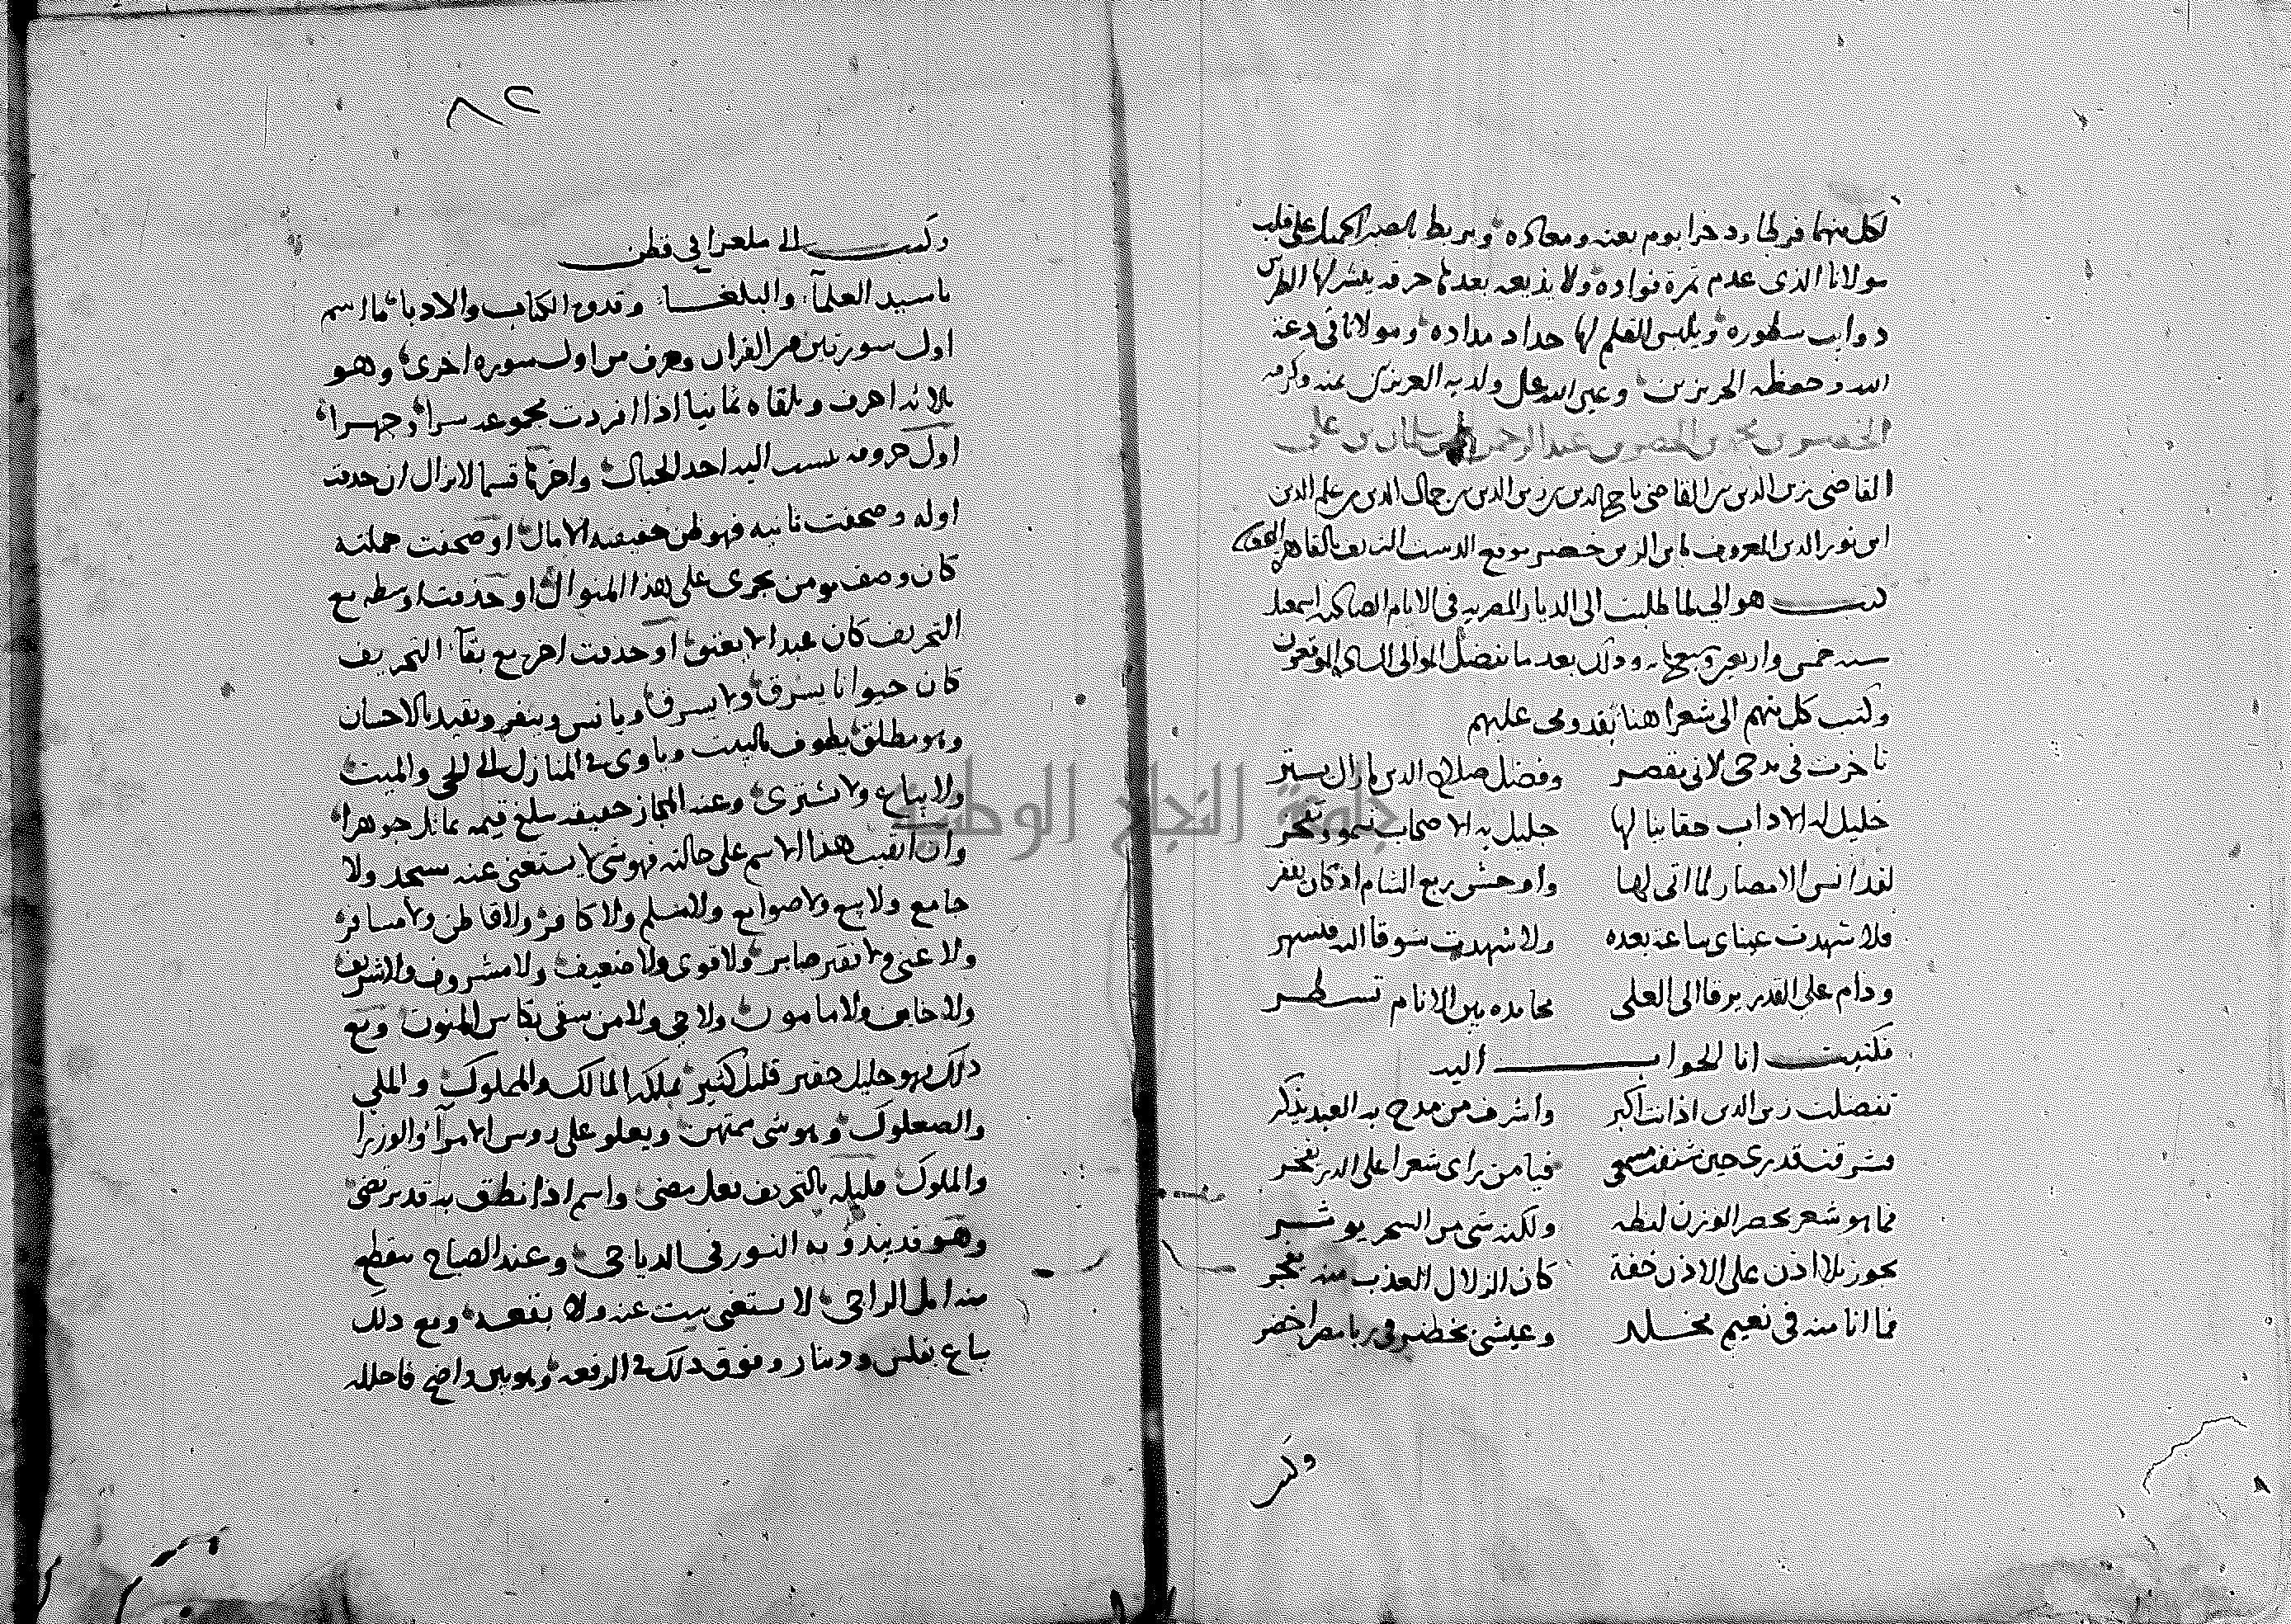 لكل منهما فرطا وذخرا يوم بعثه ومعاده ويربط بالصبر الجميل على قلب
مولانا الذي عدم ثمرة فؤاده ولا يذيقه بعدها حرقة ينشر لها الطرس
ذوايب سطوره ويلبس القلم لها حداد مداده ومولانا في دعة
الله وحفظه الحريزين وعين الله على ولديه العزيزين بمنه وكرمه
الخضر بن محمد بن الخضر بن عبد الرحمن بن سليمان بن علي
القاضي زين الدين بن القاضي تاج الدين بن زين الدين بن جمال الدين بن علم الدين
ابن نور الدين المعروف بابن الزين خضر موقع الدست الشريف بالقاهرة
كتب هو الي لما طلبت الى الديار المصرية في الايام الصالحية اسمعيل
سنة خمس واربعين وسبعماية وذلك بعد ما تفضل الموالي السادة الموقعون
وكتب كل منهم الي شعرا هنا بقدومي عليهم
تاخرت في مدحي لاني مقصر وفضل صلاح الدين ما زال يستر
خليل له الاداب حقا بنا لها جليل به الاصحاب تسمو وتفخر
لقد انس الامصار لما اتى لها واوحش ربع الشام اذ كان يقفر
فلا شهدت عيناي ساعة بعده ولا شهدت شوقا اليه فتسهر
ودام على القدر يرقا الى العلى محامده بين الانام تسطر
فكتبت انا الجواب اليه
تفضلت زين الدين اذ انت اكبر واشرف من مدح به العبد يذكر
وشرفت قدري حين شنفت مسمعي فيا من راى شعرا على الدر يفخر
فما هو شعر يحصر الوزن لفظه ولكنه شي من السحر يوثر
يجوز بلا اذن على الاذن خفة كان الزلال العذب منه يفجر
فما انا منه في نعيم مخلد وعيشي بخضر في ربا مصر اخضر
وكتب
٨٢
وكتب الي ملغزا في قطن
يا سيد العلماء والبلغا وقدوة الكتاب والادبا ما اسم
اول سورتين من القران وحرف من اول سورة اخرى وهو
ثلاثة احرف وتلقاه ثمانيا اذا افردت مجموعه سرا وجهرا
اول حروفه ينسب اليه احد الجبال واخرها قسما لا يزال ان حذفت
اوله وصحفت ثانيه فهو ظن حقيقته الامال او صحفت جملته
كان وصف مومن يجري على هذا المنوال او حذفت اوسطه مع
التحريف كان عبدا لا يعتق او حذفت اخره مع بقاء التحريف
كان حيوانا يسرق ولا يسرق ويانس وينفر ويقيد بالاحسان
وهو مطلق يطوف بالبيت وياوي في المنازل الى الحي والميت
ولا يباع ولا يشترى وعند المجاز حقيقة يبلغ قيمة تماثل جوهرا
وان ابقيت هذا الاسم على حالته فهو شي لا يستغني عنه مسجد ولا
جامع ولا بيع ولا صوامع ولا مسلم ولا كافر ولا قاطن ولا مسافر
ولا غني ولا فقير صابر ولا قوي ولا ضعيف ولا مشروف ولا شريف
ولا خايف ولا مامون ولا حي ولا من سقي بكاس المنون ومع
ذلك فهو جليل حقير قليل كثير يملكه المالك والمملوك والملي
والصعلوك وهو شي ممتهن ويعلو على روس الامراء والوزرا
والملوك قليله بالتحريف فعل مضى واسم اذا نطق به قدير تضى
وهو قد يبدو به النور في الدياجي وعند الصباح يقطع
منه امل الراجي لا يستغني بيت عنه ولا بقعة ومع ذلك
يباع بفلس ودينار وفوق ذلك في الرفعة وهو بين واضح فاحلله